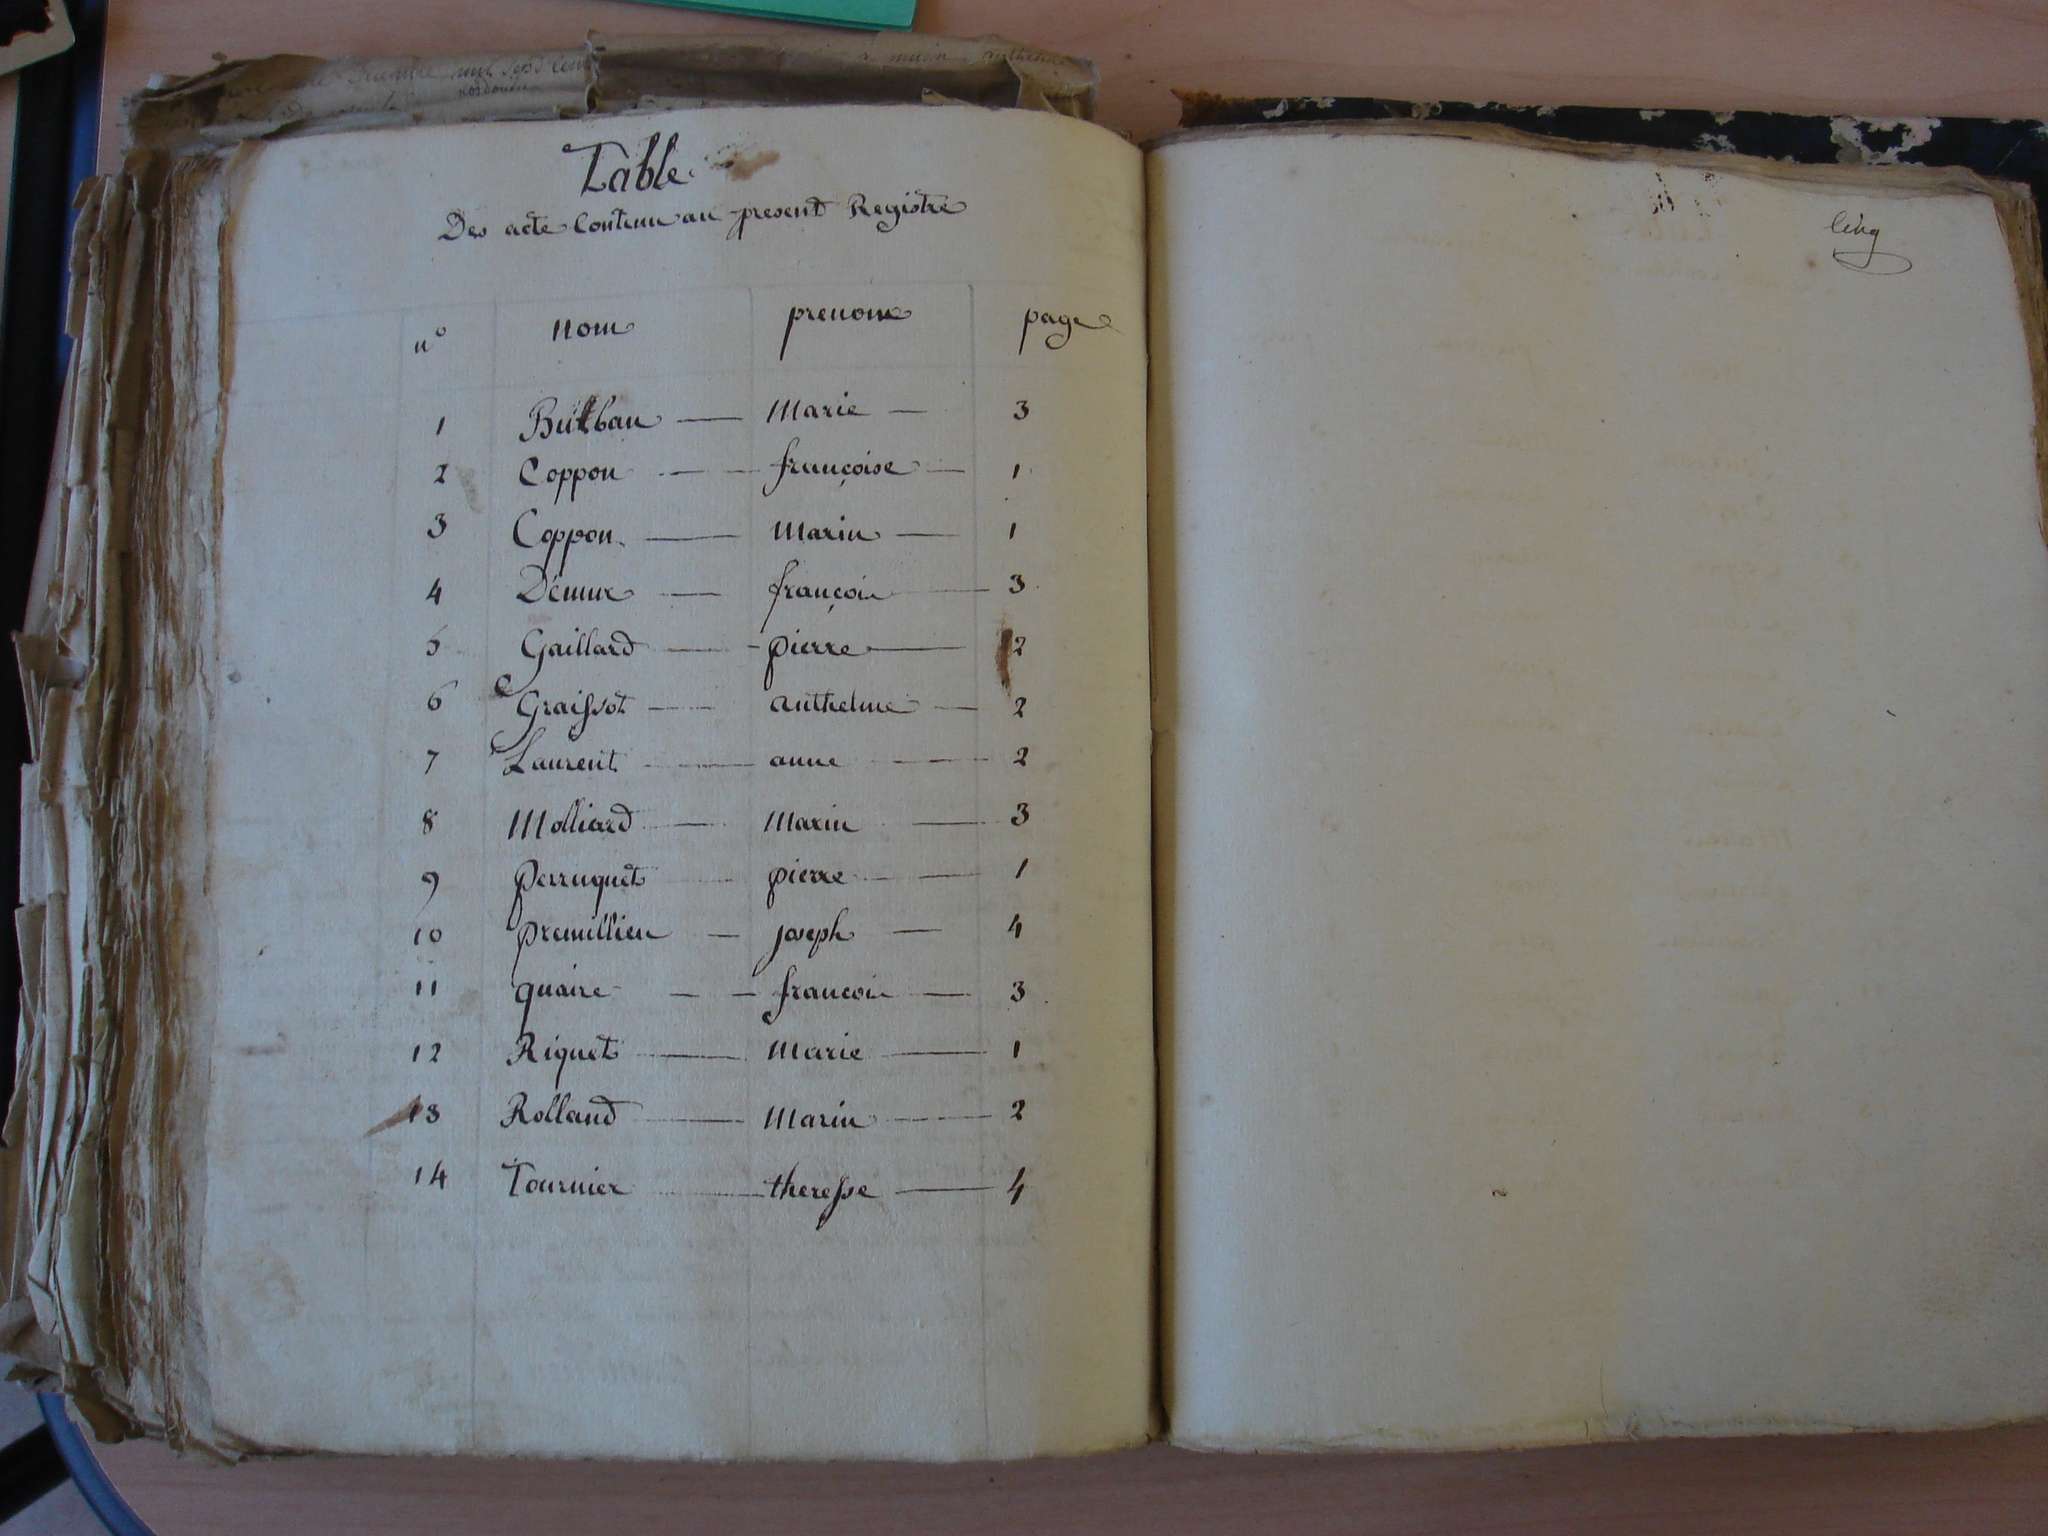 Table
Des acte Contenu au present Registre
n° nom prenom page
1 Marie 3
2 Coppon françoise 1
3 Coppon Marin 1
4 Démur françois 3
5 Gaillard pierre 2
6 Graissot anthelme 2
7 Laurent anne 2
8 Molliard Marin 3
9 perruquet pierre 1
10 premillieu joseph 4
11 quaire françois 3
12 Riquet Marie 1
13 Rolland Marin 2
14 Tournier theresse 4
Cinq